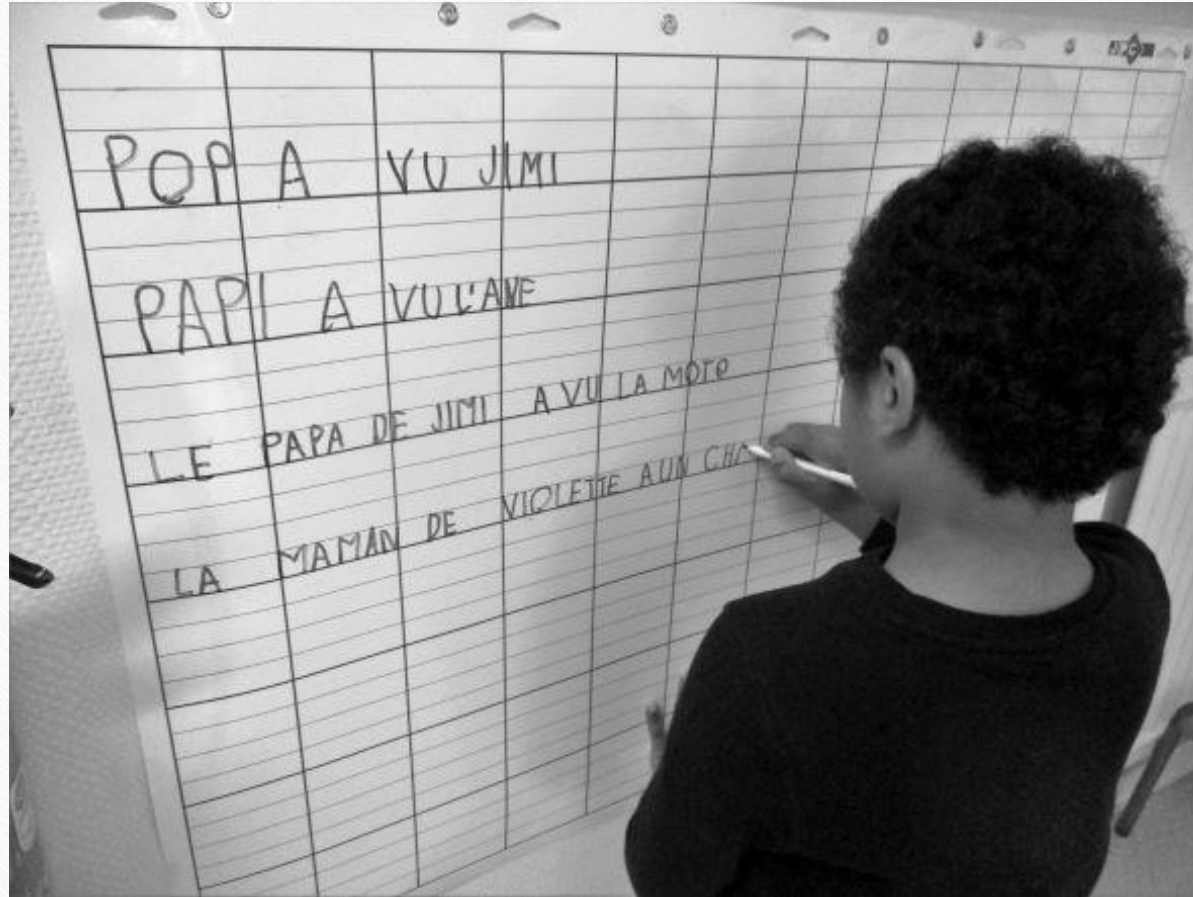 POP A VU JIMI
PAPI A VU L'ANE
LE PAPA DE JIMI A VU LA MOTO
LA MAMAN DE VIOLETTE A UN CHA